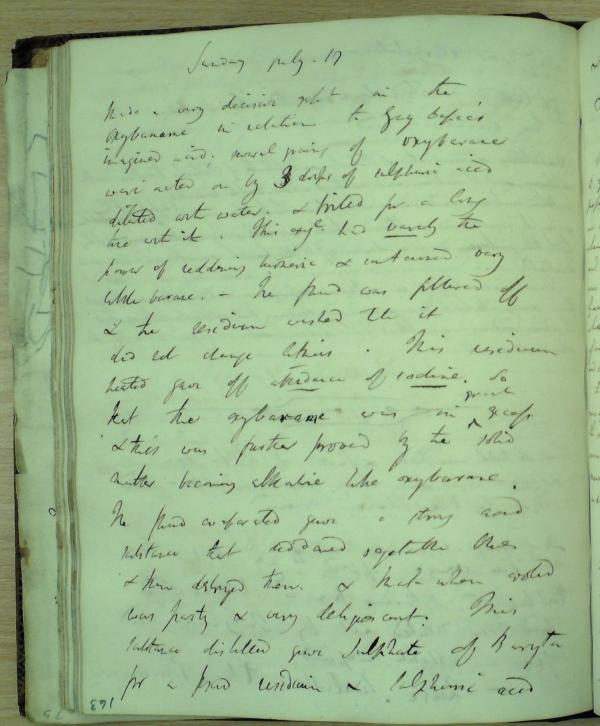 Sunday July. 17
Made a very decisive in the
oxybaname in relation to Gay Lussac's
imagined acid; several grains of oxybarane
were acted on by 3 drops of sulphuric acid
diluted with water. & boiled for a long
time with it. This had barely the
power of reddening turmeric & contained very
little barane. - The fluid was filtered off
& the residuum washed till it
did not change litmus. This residuum
heated gave off abundance of iodine. So
that the oxybarane was in great excess
& this was further proved by the solid
matter becoming alkaline like oxybarane.
The fluid evaporated gave a strong acid
substance that reddened vegetable blues
& then destroyed them. & that when cooled
was pasty & very deliquescent. This
substance distilled gave Sulphate of Barytes
for a fixed residuum & sulphuric acid
163